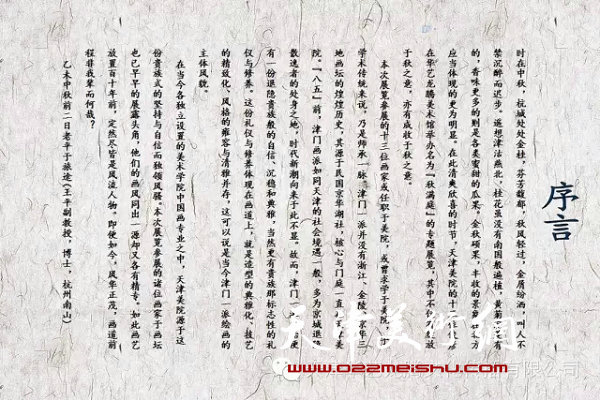 序言
时在中秋，杭城处处金桂，芬芳馥郁，秋风轻过，金屑纷洒，叫人不
禁沉醉而迟步。遥想津沽燕北，桂花虽没有南国般遍植，黄菊
的，香味更多的则是各类蜜甜的瓜果。金秋硕果，丰收的景
应当体现的更为明显。在此清爽欣喜的时节，天津美院的十
在华艺龙腾美术馆举办名为『秋满庭』的专题展览，其中不
于秋之意，亦有成收于秋之意。
本次展览参展的十三位画家或任职于美院，或曾求学于美院，
学术传统来说，乃是师承一脉。津门一派并没有浙江、金陵、京华三
地画坛的煌煌历史，其源于民国京华湖社，核心与门庭一直
院。『八五』前，津门画派如同天津的社会境遇一般，多为京城退隐
散逸者的处身之地，时代新潮向来于此不显。故而，津门
有一份退隐贵族般的自信、沉稳和典雅，当然更有贵族那标志性的礼
仪与修养。这份礼仪与修养体现在画道上，就是造型的典雅化、技艺
的精致化、风格的雍容与清雅并存，这可以说是当今津门一派绘画的
主体风貌。
在当今各独立设置的美术学院中国画专业之中，天津美院源于这
份贵族式的坚持与自信而独领风骚。本次展览参展的诸位画家于画坛
也已早早的展露头角，他们的画风同出一源却又各有精专。如此画艺
放置百十年前，定然尽皆是风流人物。即便如今，风华正茂，画道前
程非我辈而何哉？
乙未中秋前二日老辛于旅途（王平副教授，博士，杭州南山）
天津美術網
www.022meishu.com
有限公司